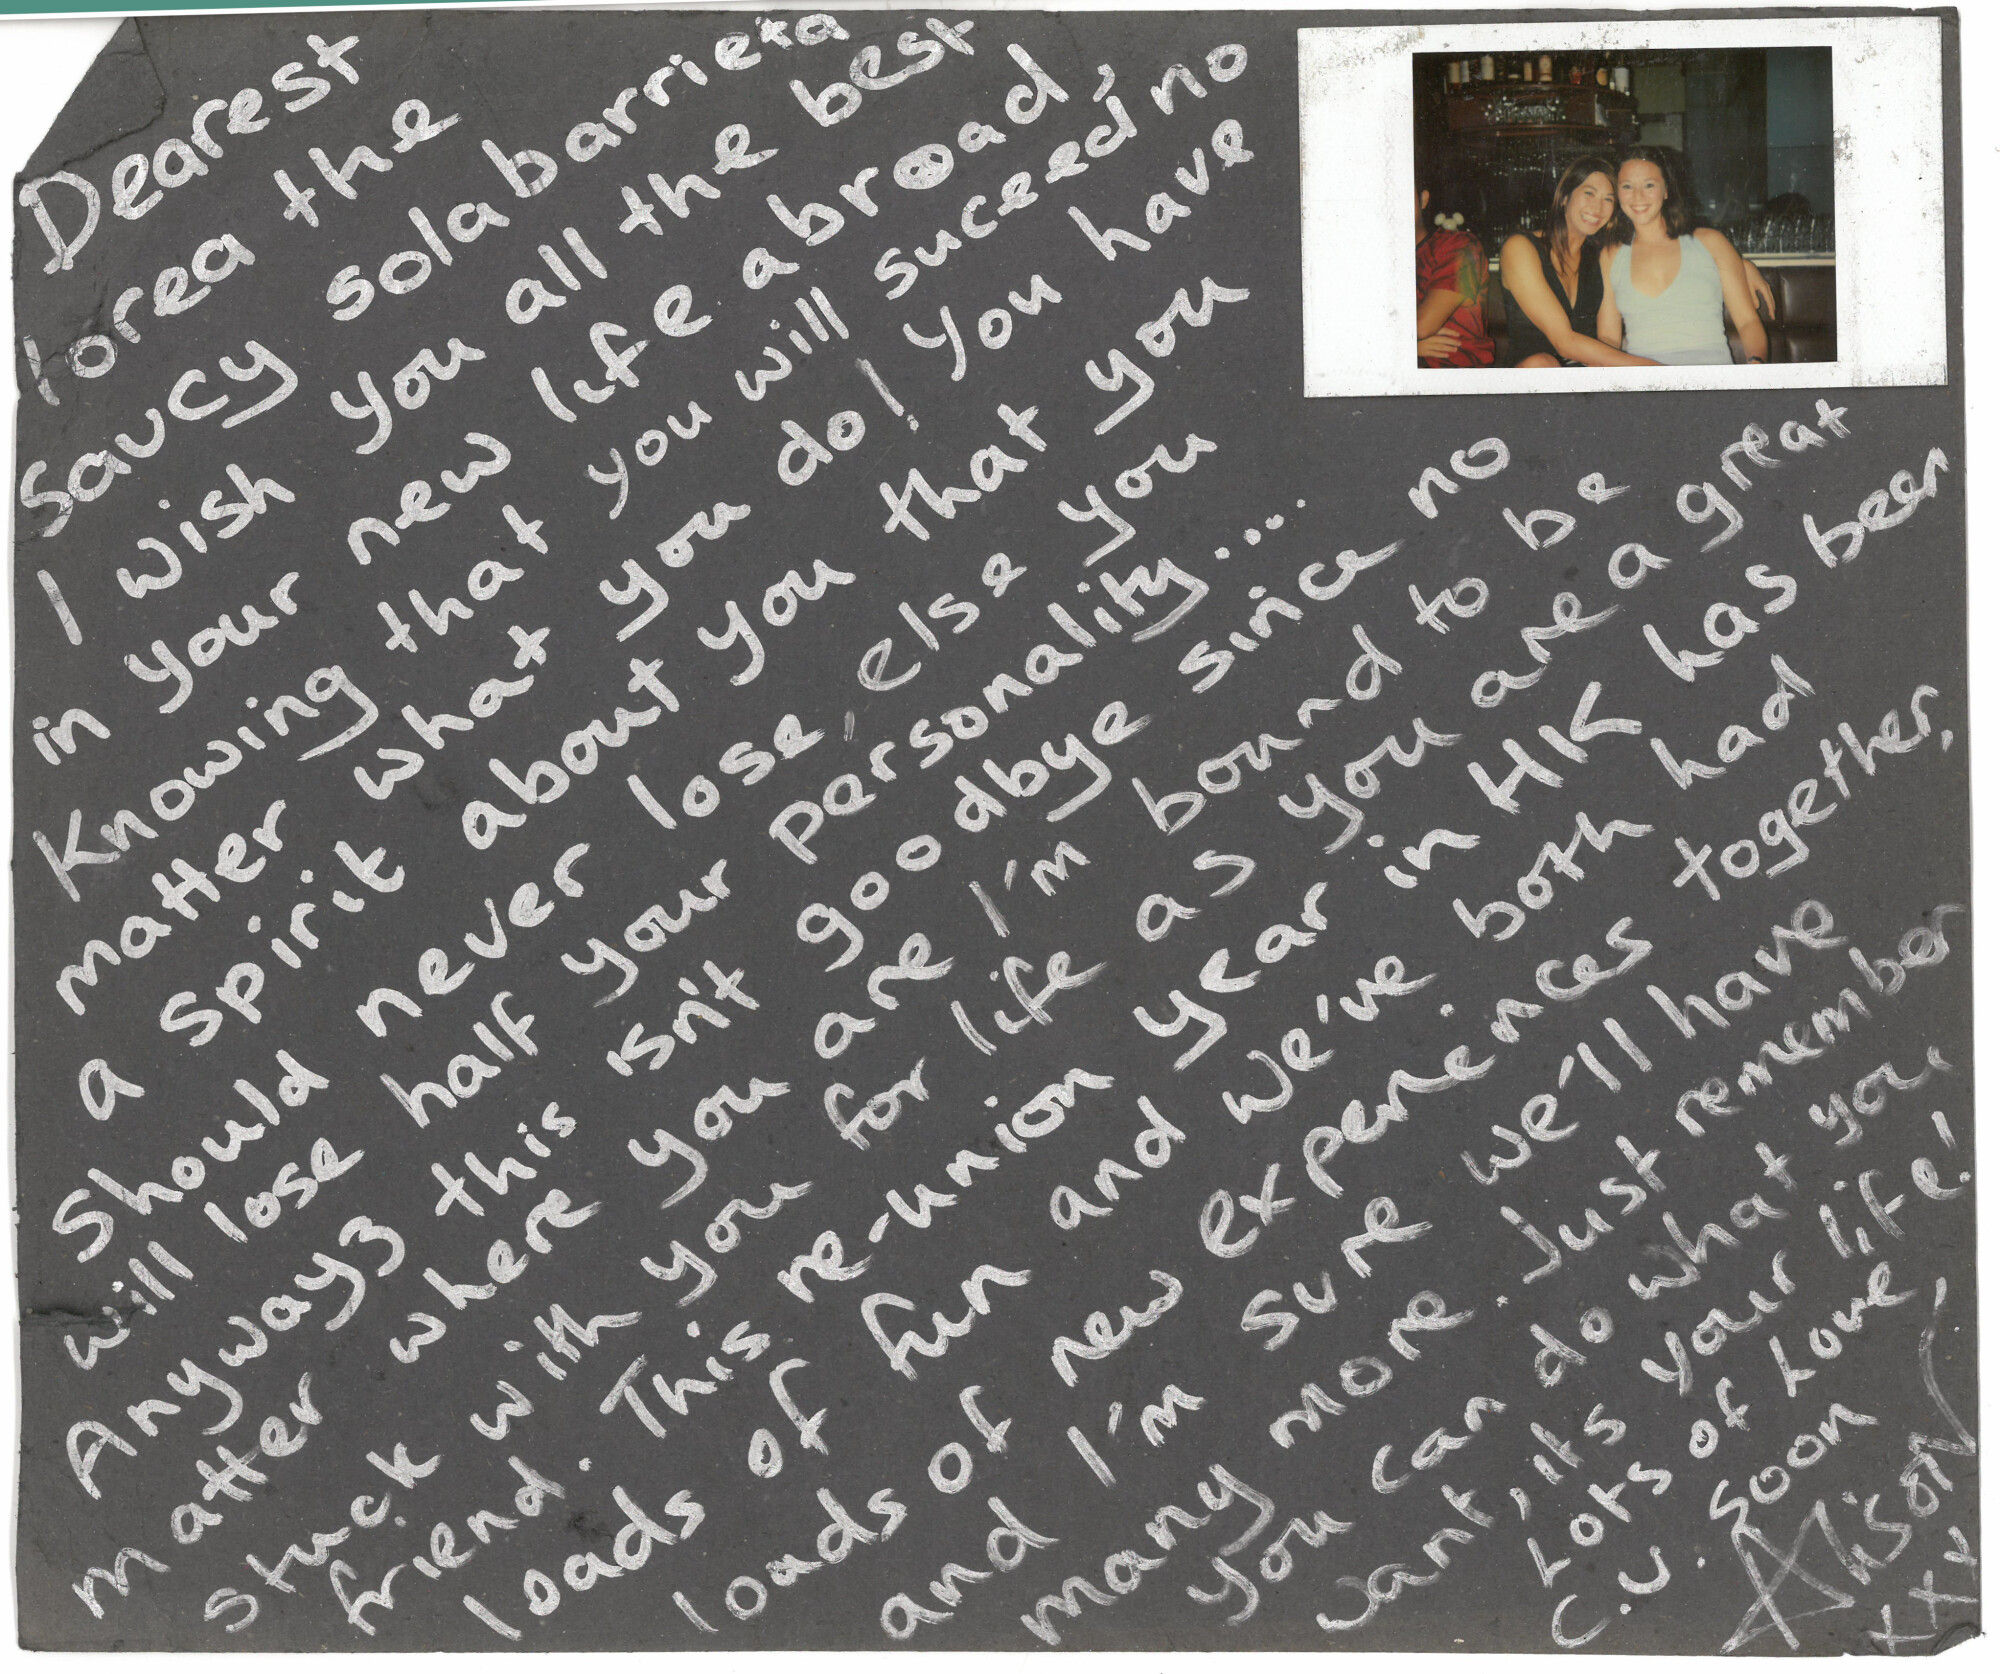 Dearest
lorea the
Saucy solabarrieta
I wish you all the best
in your new life abroad,
Knowing that you will suceed no
matter what you do! You have
a spirit about you that you
Should never lose, else you
will lose half your personality....
Anyways this isn't goodbye since no
matter where you are I'm bound to be
stuck with you for life as you are a great
friend. This re-union year in HK has been
loads of fun and we've both had
loads of new experiences together,
and I'm sure we'll have
many more. Just remember
you can do what you
want, its your life!
Lots of Love,
C.U. soon
Alison
xxx